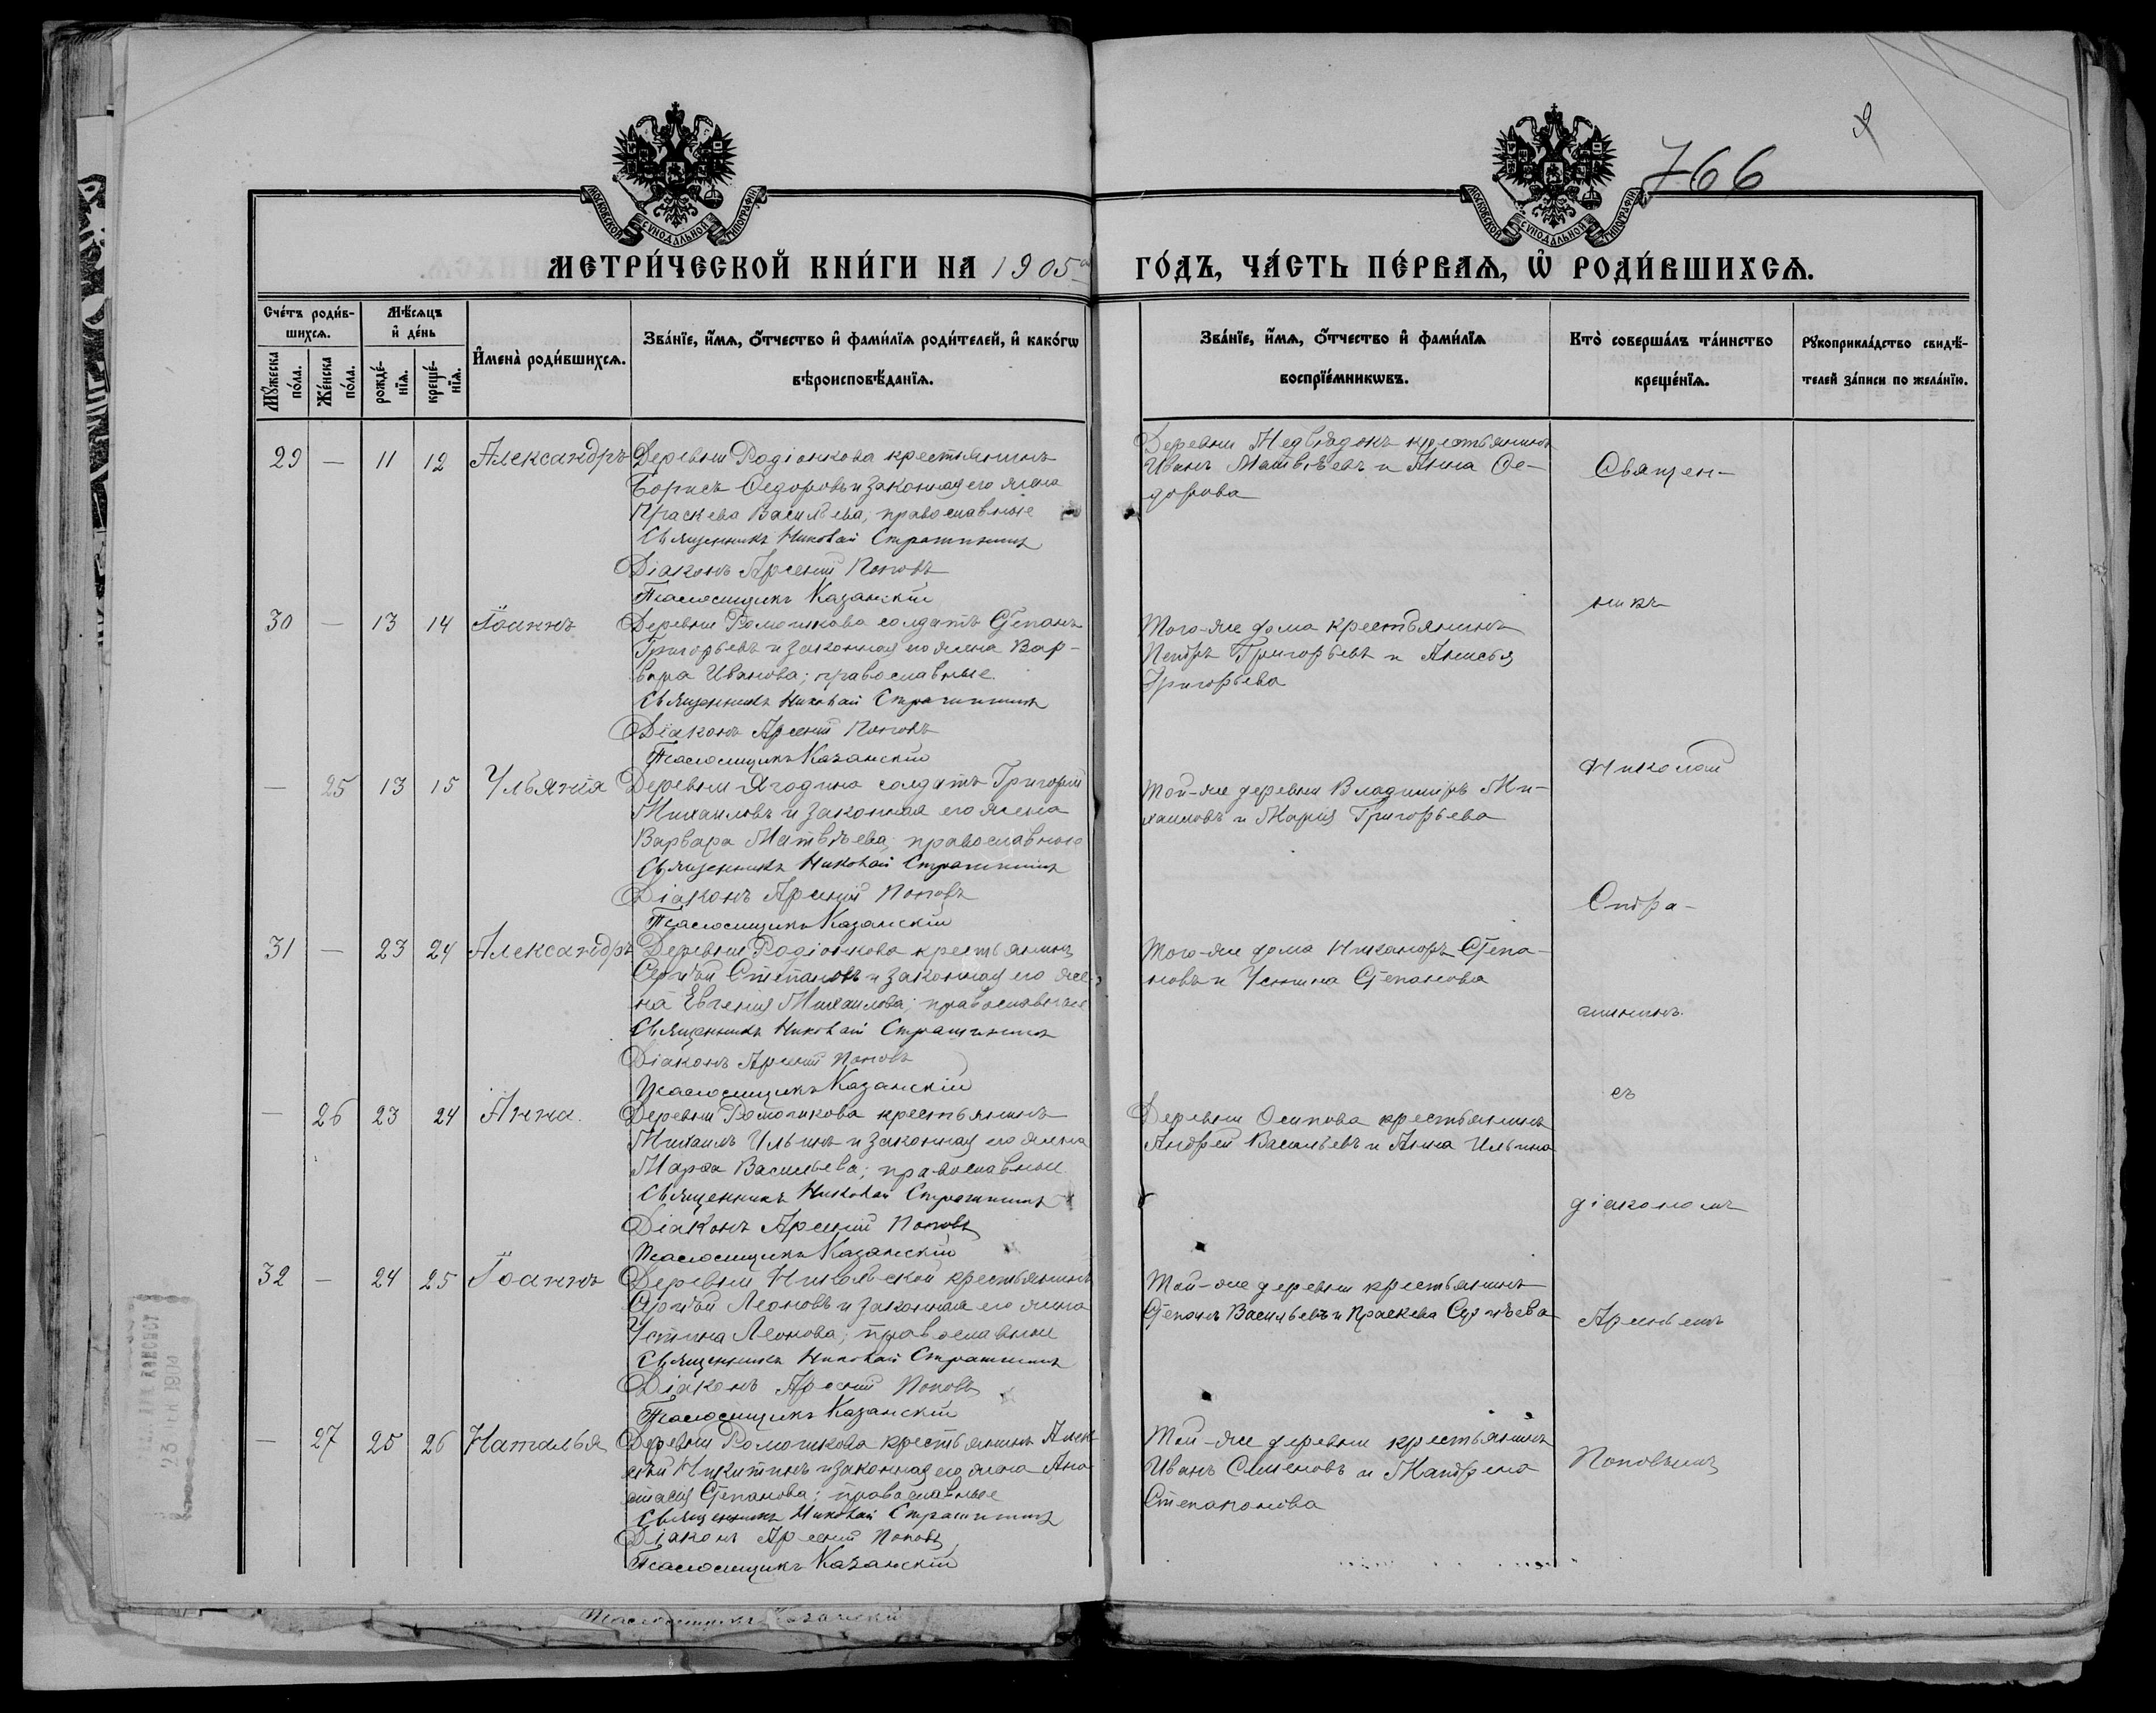 766
МОСКОВСКОЙ СУНОДАЛЬНОЙ ТИПОГРАФІИ
МОСКОВСКОЙ СУНОДАЛЬНОЙ ТИПОГРАФІИ
МЕТРИ́ЧЕСКОЙ КНИ́ГИ НА 1905
ГО́ДЪ, ЧА́СТЬ ПЕ́РВАѦ, Ѡ҆ РОДИ́ВШИХСѦ.
Сче́тъ роди́в-
шихсѧ.
Мꙋ́жеска по́ла.
Же́нска по́ла.
Мѣ́сѧцъ
и҆ де́нь
рожде́-
нїѧ.
креще́-
нїѧ.
И҆мена̀ роди́вшихсѧ.
Зва́нїе, и҆́мѧ, ѻ҆́тчество и҆ фами́лїѧ роди́телей, и҆ како́гѡ
вѣроисповѣ́данїѧ.
Зва́нїе, и҆́мѧ, ѻ҆́тчество и҆ фами́лїѧ
воспрїе́мникѡвъ.
Кто̀ соверша́лъ та́инство
креще́нїѧ.
Рꙋкоприкла́дство свидѣ́-
телей за́писи по жела́нїю.
29 — 11 12 Александръ Деревни Родіонкова крестьянинъ
Борисъ Ѳедоровъ и законная его жена
Праскева Васильева; православные
Священникъ Николай
Діаконъ Арсеній Поповъ
Псаломщикъ Казанскій
Деревни Медвѣдокъ крестьянинъ
Иванъ Матвѣевъ и Анна Ѳе-
дорова
Священ-
никъ
30 — 13 14 Іоаннъ Деревни Ромашкова солдатъ Степанъ
Григорьевъ и законная его жена Вар-
вара Иванова; православные
Священникъ Николай
Діаконъ Арсеній Поповъ
Псаломщикъ Казанскій
Того-же дома крестьянинъ
Петръ Григорьевъ и Анисья
Григорьева
Николай
— 25 13 15 Ульянія Деревни Ягодина солдатъ Григорій
Михаиловъ и законная его жена
Варвара Матвѣева; православные
Священникъ Николай
Діаконъ Арсеній Поповъ
Псаломщикъ Казанскій
Той-же деревни Владиміръ Ми-
хаиловъ и Марія Григорьева
Стра-
31 — 23 24 Александръ Деревни Родіонкова крестьянинъ
Сергѣй Степановъ и законная его же-
на Евгенія Михаилова; православные
Священникъ Николай
Діаконъ Арсеній Поповъ
Псаломщикъ Казанскій
Того-же дома Никаноръ Степа-
новъ и Устина Степанова
съ
— 26 23 24 Анна. Деревни Ромашкова крестьянинъ
Михаилъ Ильинъ и законная его жена
Марѳа Васильева; православные
Священникъ Николай
Діаконъ Арсеній Поповъ
Псаломщикъ Казанскій
Деревни Осипова крестьянинъ
Андрей Васильевъ и Анна Ильина
діакономъ
32 — 24 25 Іоаннъ Деревни Никольской крестьянинъ
Сергѣй Леоновъ и законная его жена
Устина Леонова; православные
Священникъ Николай
Діаконъ Арсеній Поповъ
Псаломщикъ Казанскій
Той-же деревни крестьянинъ
Степанъ Васильевъ и Праскева Сергѣева
Арсеньемъ
— 27 25 26 Наталья Деревни Ромашкова крестьянинъ Алек-
сѣй Никитинъ и законная его жена Ана-
стасія Степанова; православные
Священникъ Николай
Діаконъ Арсеній Поповъ
Псаломщикъ Казанскій
Той-же деревни крестьянинъ
Иванъ Семеновъ и Матрена
Поповымъ